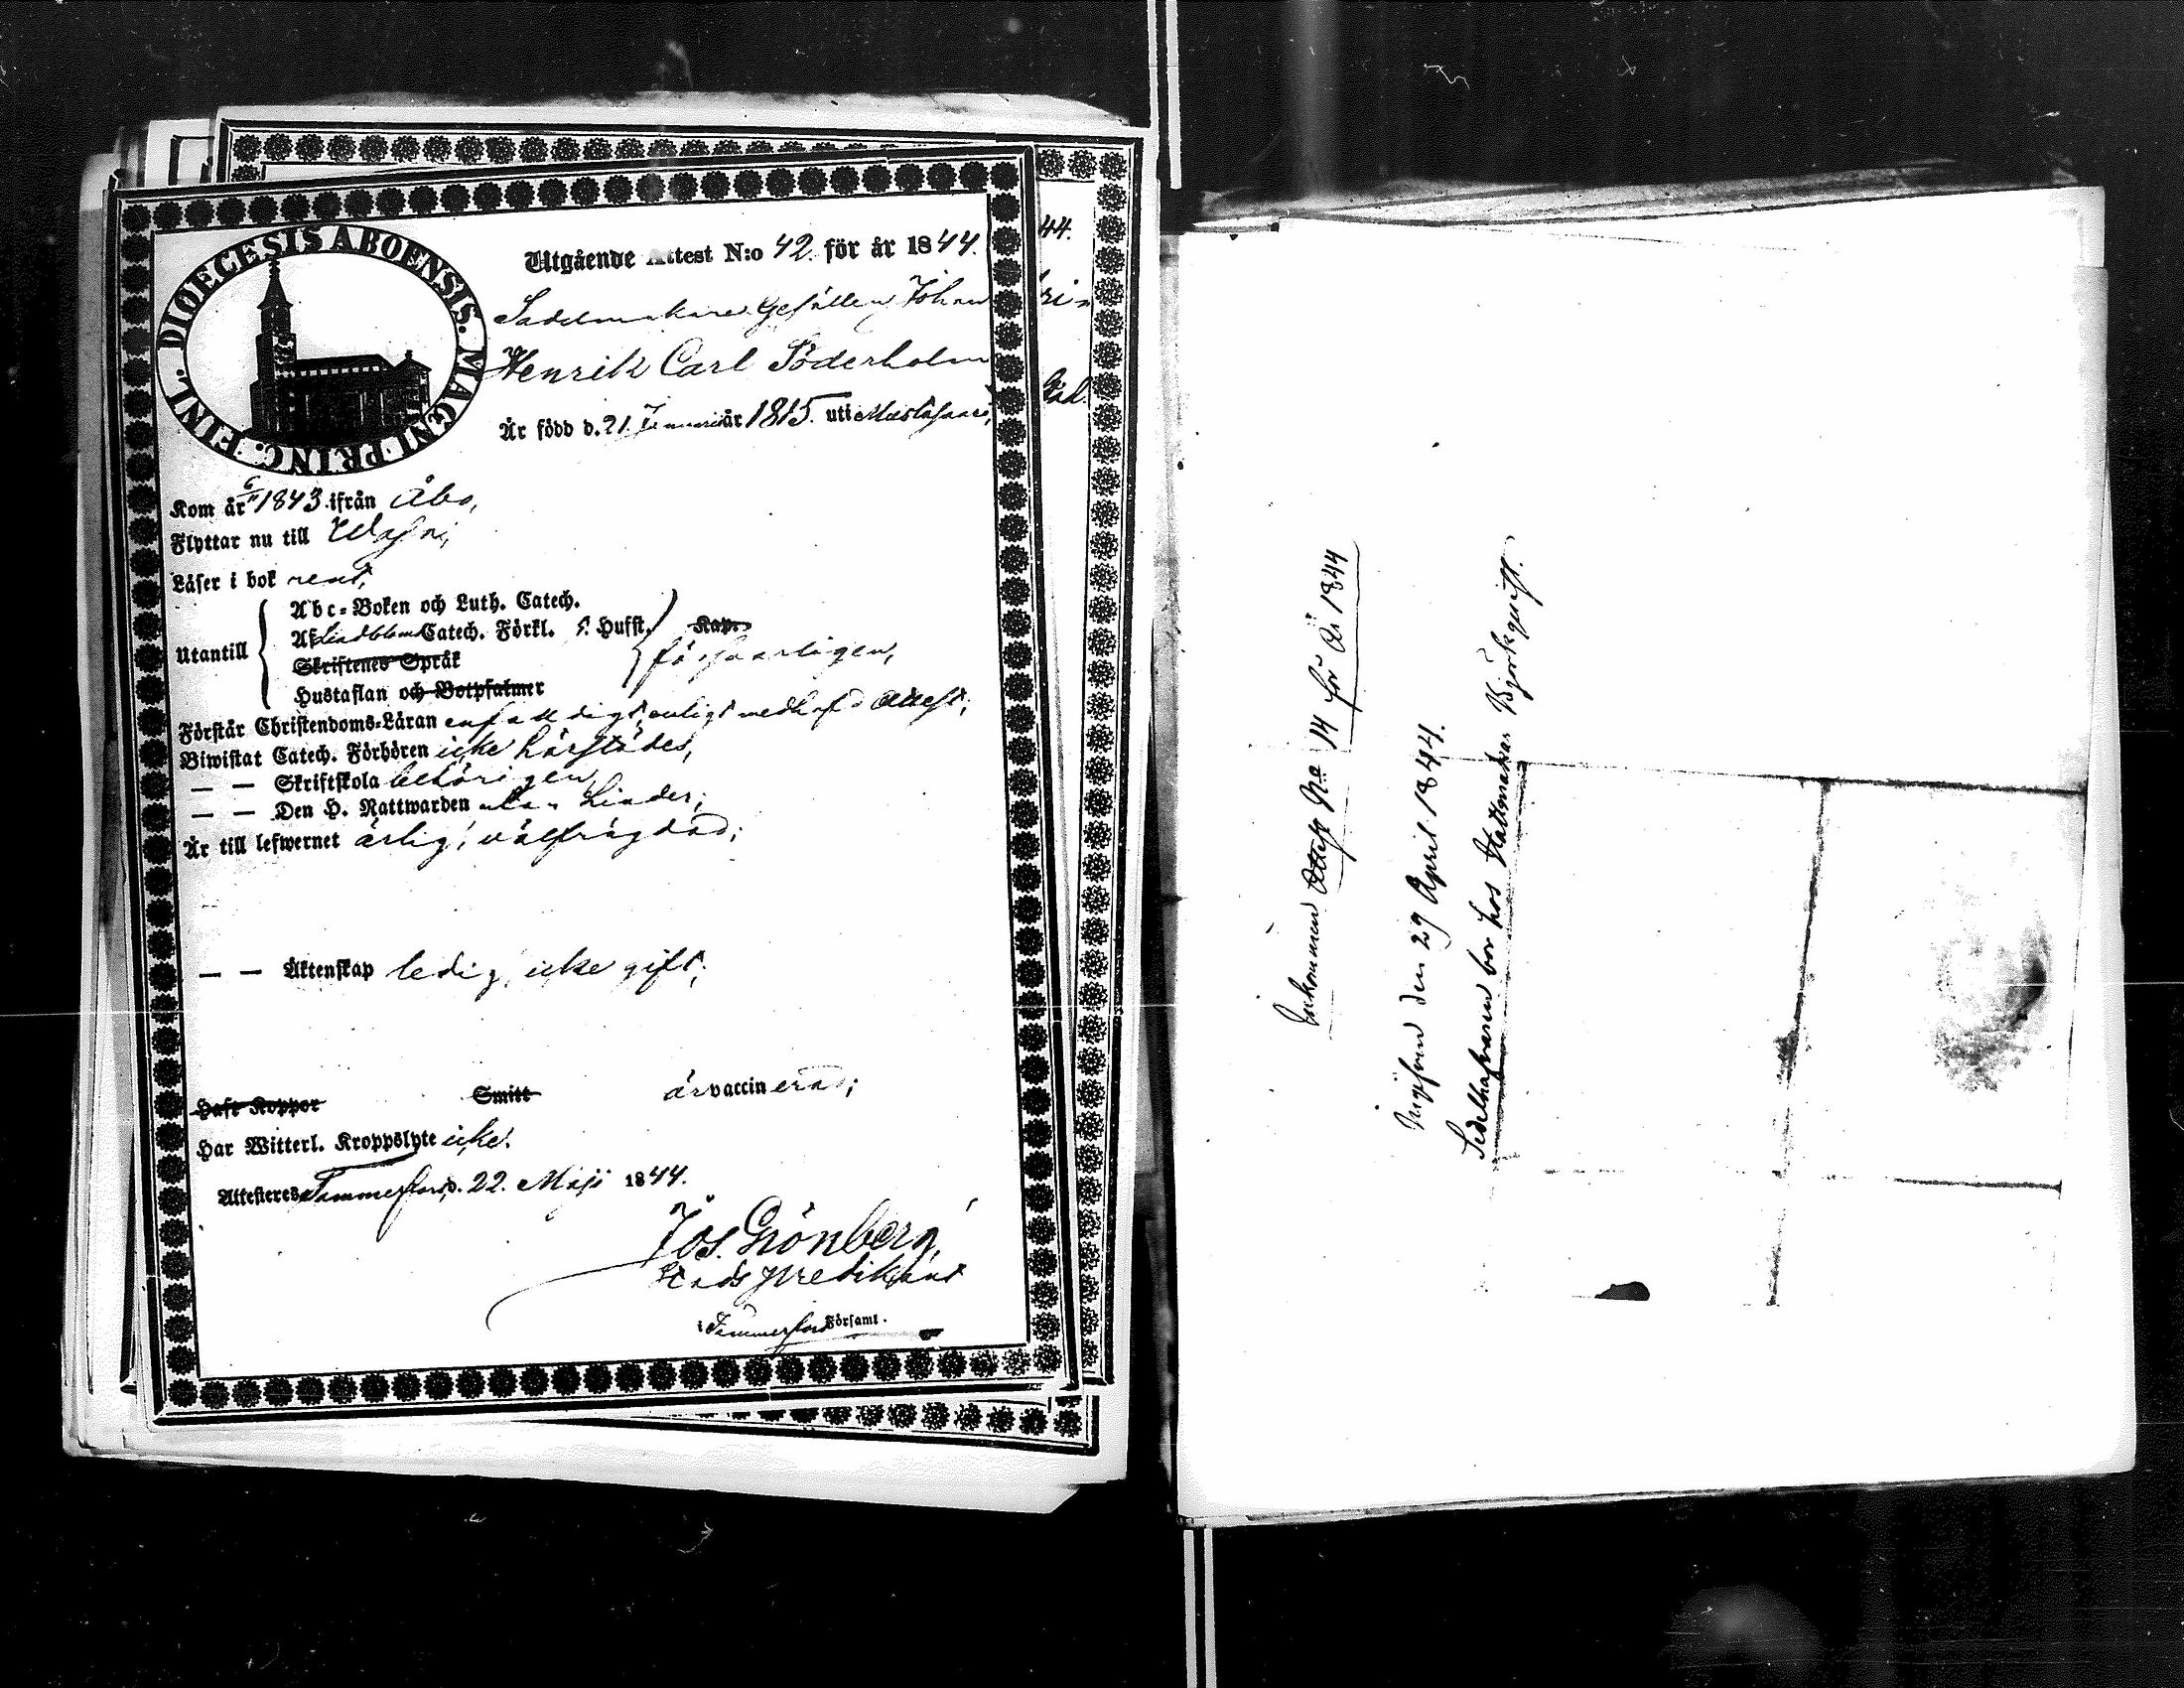 DIOECESIS ABOENSIS. MAGNI PRINC. FINL.
Utgående Attest N:o 42. för år 1844.
Sadelmakare Gesällen Johan
Henrik Carl Söderholm
Är född d. 21. Januari år 1815. uti Mustasaari,
Kom år 6/11 1843 ifrån Åbo,
Flyttar nu till Wasa;
Läser i bok rent,
Utantill
Abc-Boken och Luth. Catech.
Af Lindbloms Catech. Förkl. s. Hufst. Kap.
Skriftenes Språk
försvarligen,
Hustaflan och Botpsalmer
Förstår Christendoms-Läran enfaldigt, enligt medhafd Attest;
Biwistat Catech. Förhören icke härstädes,
— — Skriftskola behörigen,
— — Den H. Nattwarden utan hinder;
Är till lefwernet ärlig, välfrägdad;
— — Äktenskap ledig, icke gift;
Haft Koppor Smitt är vaccinerad;
Har Witterl. Kroppslyte icke.
Attesteres Tammerfors, d. 22. Maji 1844.
Jos. Grönberg,
Stads predikant
i Tammerfors Församl.
44.
Inkommen Attest No 14 för år 1844
Ingifven den 29 April 1844.
Sedelhafvaren bor hos Hattmakar Björkqvist.